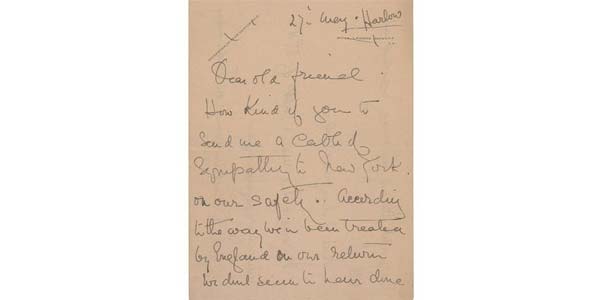 27th May. Harlow
Dear old friend.
How kind of you to
send me a cable of
sympathy to New York.
on our safety.. According
to the way we've been treated
by England on our return
we didn't seem to have done